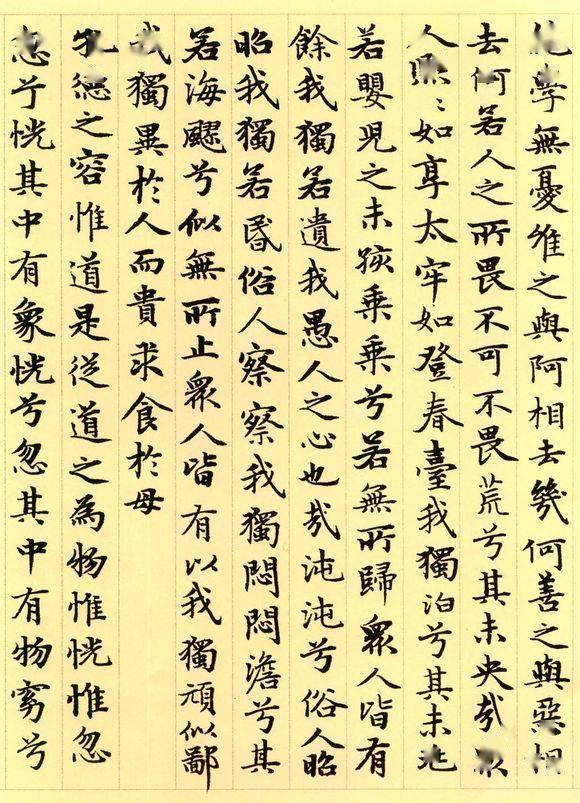 絕學無憂維之與阿相去幾何善之與惡相
去何若人之所畏不可不畏荒兮其未央哉眾
人熙〻如享太牢如登春臺我獨泊兮其未兆
若嬰兒之未孩乘乘兮若無所歸眾人皆有
餘我獨若遺我愚人之心也哉沌沌兮俗人昭
昭我獨若昬俗人察察我獨悶悶澹兮其
若海飂兮似無所止眾人皆有以我獨頑似鄙
我獨異於人而貴求食於母
孔德之容惟道是從道之為物惟恍惟忽
忽兮恍其中有象恍兮忽其中有物窈兮